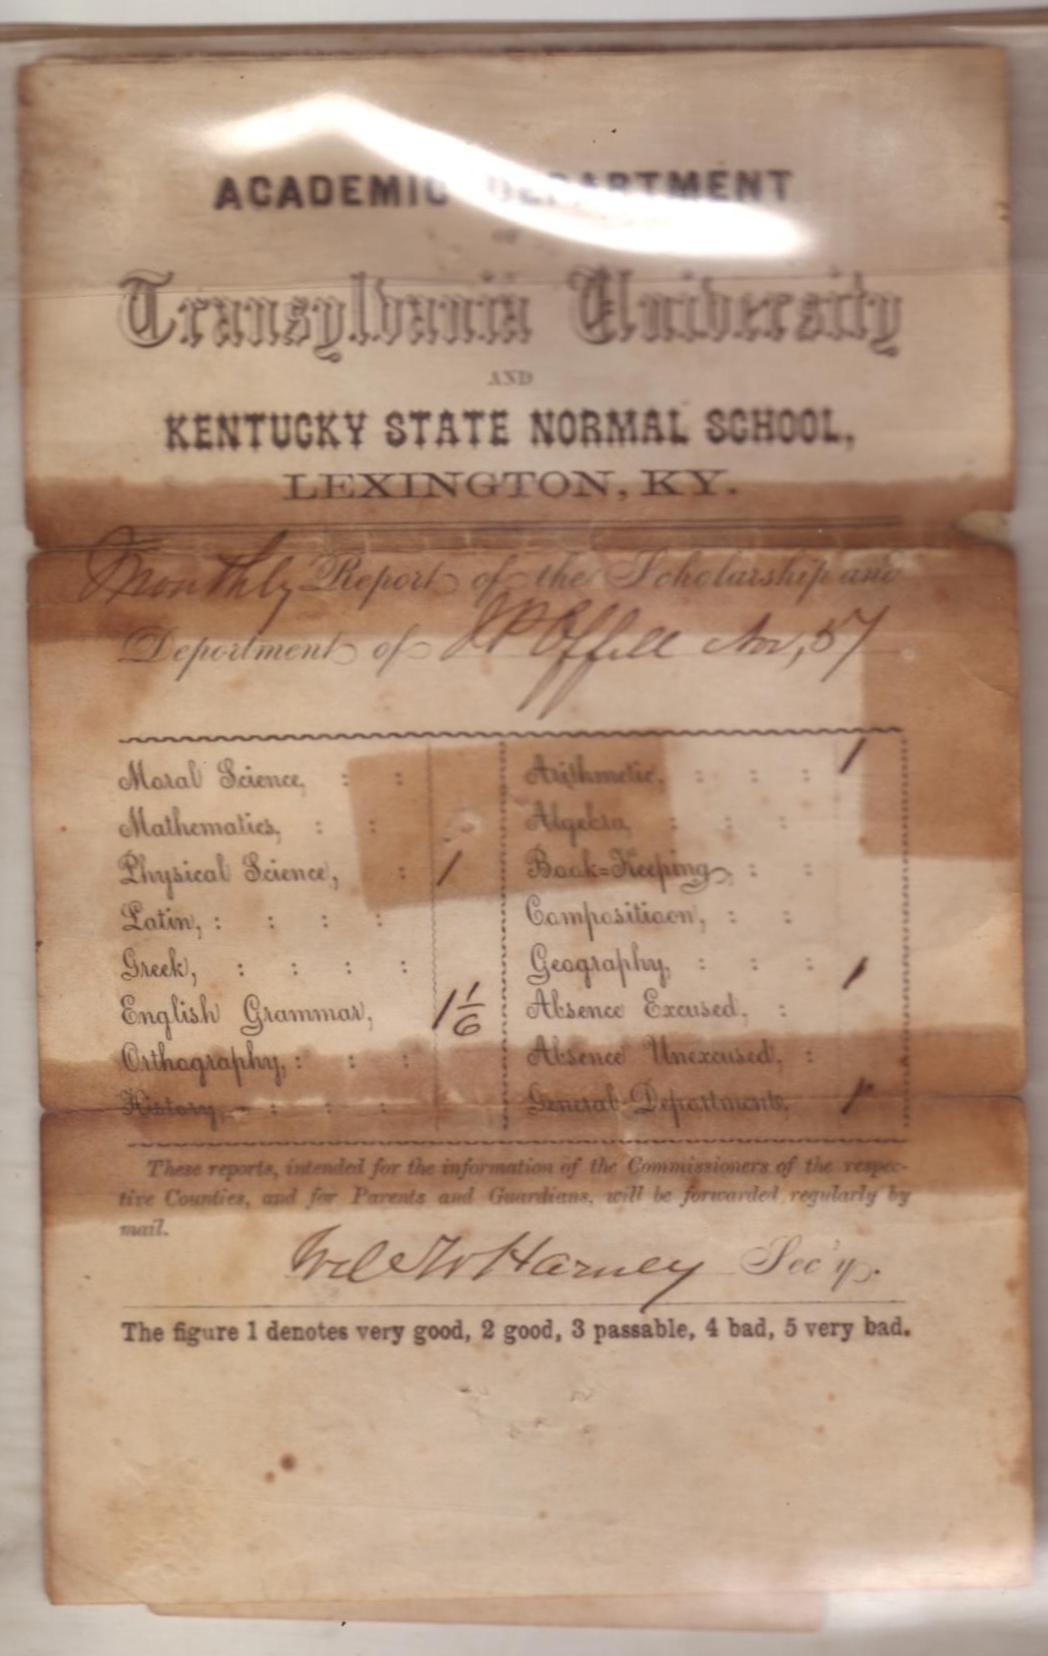 ACADEMIC DEPARTMENT
OF
Transylvania University
AND
KENTUCKY STATE NORMAL SCHOOL,
LEXINGTON, KY.
Monthly Report of the Scholarship and
Deportment of J P Offill Nov, 57
Moral Science, : :
Mathematics, : :
Physical Science, : 1
Latin, : : : :
Greek, : : : :
English Grammar, 1 1/6
Orthography, : : :
History, - : : :
Arithmetic, : : : 1
Algebra, : : :
Book=Keeping, : :
Composition, : :
Geography, : : : 1
Absence Excused, :
Absence Unexcused, :
General Deportment, 1
These reports, intended for the information of the Commissioners of the respec-
tive Counties, and for Parents and Guardians, will be forwarded regularly by
mail.
Harney Sec'y.
The figure 1 denotes very good, 2 good, 3 passable, 4 bad, 5 very bad.